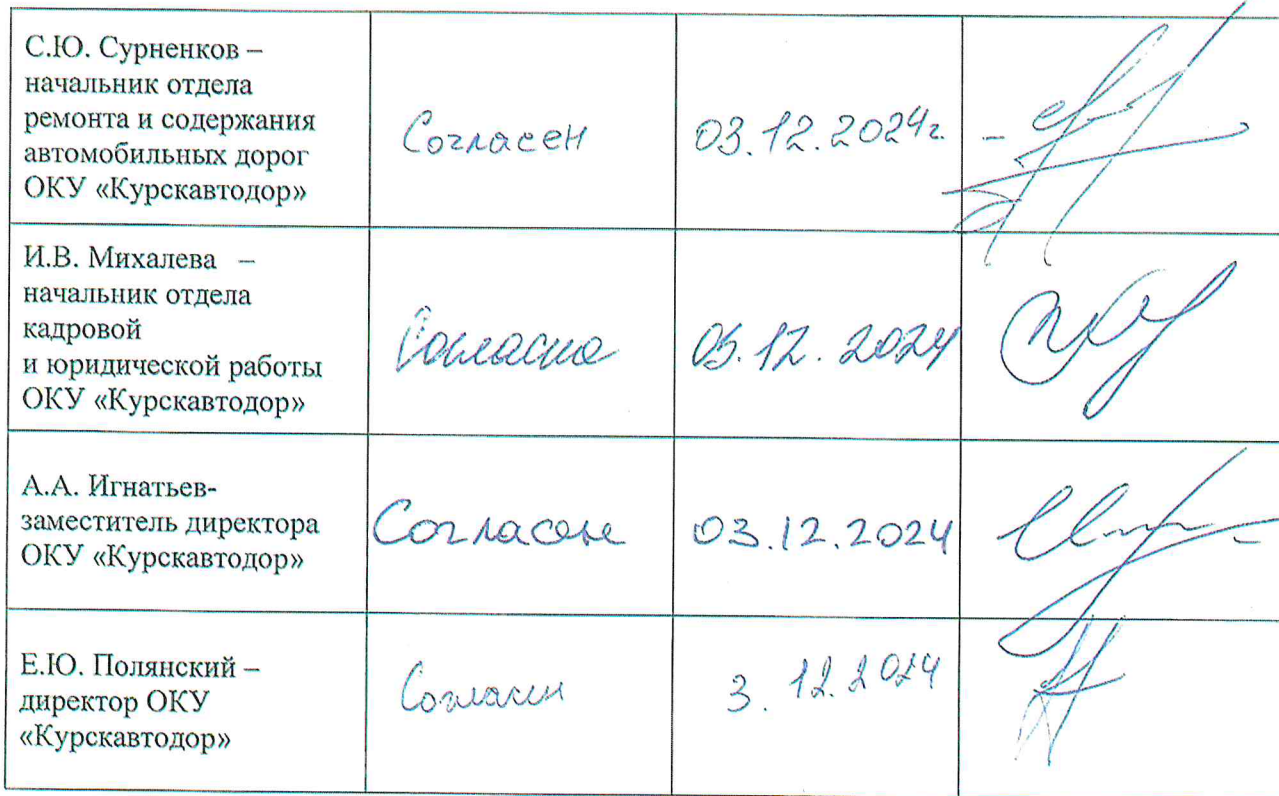 С.Ю. Сурненков –
начальник отдела
ремонта и содержания
автомобильных дорог
ОКУ «Курскавтодор»
Согласен
03.12.2024г.
И.В. Михалева –
начальник отдела
кадровой
и юридической работы
ОКУ «Курскавтодор»
Согласна
03.12.2024
А.А. Игнатьев-
заместитель директора
ОКУ «Курскавтодор»
Согласен
03.12.2024
Е.Ю. Полянский –
директор ОКУ
«Курскавтодор»
Согласен
3. 12.2024